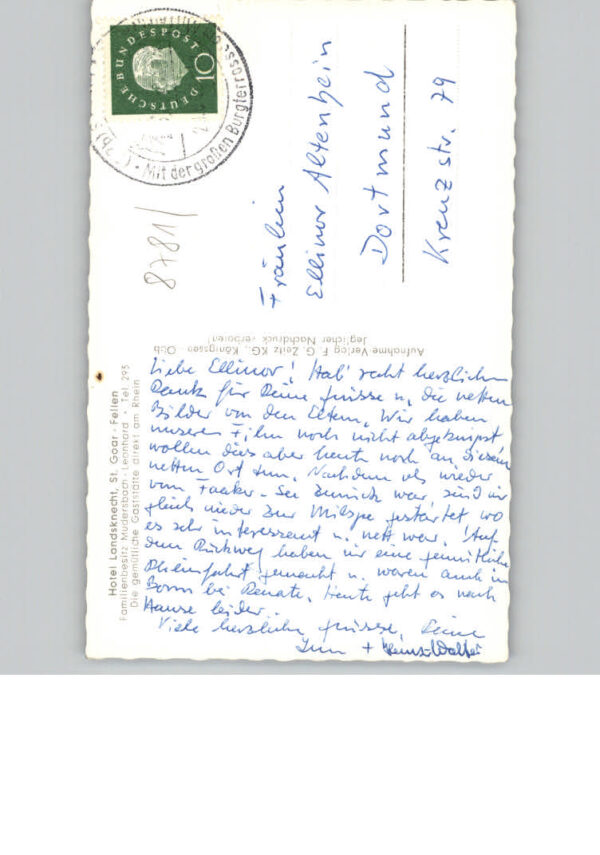 DEUTSCHE BUNDESPOST
10
Mit der großen Burgterrasse
8781/
Fräulein
Ellinor Altenhein
Dortmund
Kreuzstr. 79
Aufnahme-Verlag F. G. Zeitz KG., Königssee - Obb
Jeglicher Nachdruck verboten!
Hotel Landsknecht, St. Goar - Fellen
Familienbesitz Mudersbach - Leonhard · Tel. 295
Die gemütliche Gaststätte direkt am Rhein
Liebe Ellinor! Hab' recht herzlichen
Dank für Deine Grüsse u. die netten
Bilder von den Eltern. Wir haben
unseren Film noch nicht abgeknipst,
wollen dies aber heute noch an diesem
netten Ort tun. Nachdem ich wieder
vom Faaker-See zurück war, sind wir
gleich wieder zur Milspe gestartet wo
es sehr interessant u. nett war. Auf
dem Rückweg haben wir eine gemütliche
Rheinfahrt gemacht u. waren auch in
Bonn bei Renate. Heute geht es nach
Hause leider.
Viele herzliche Grüsse, Deine